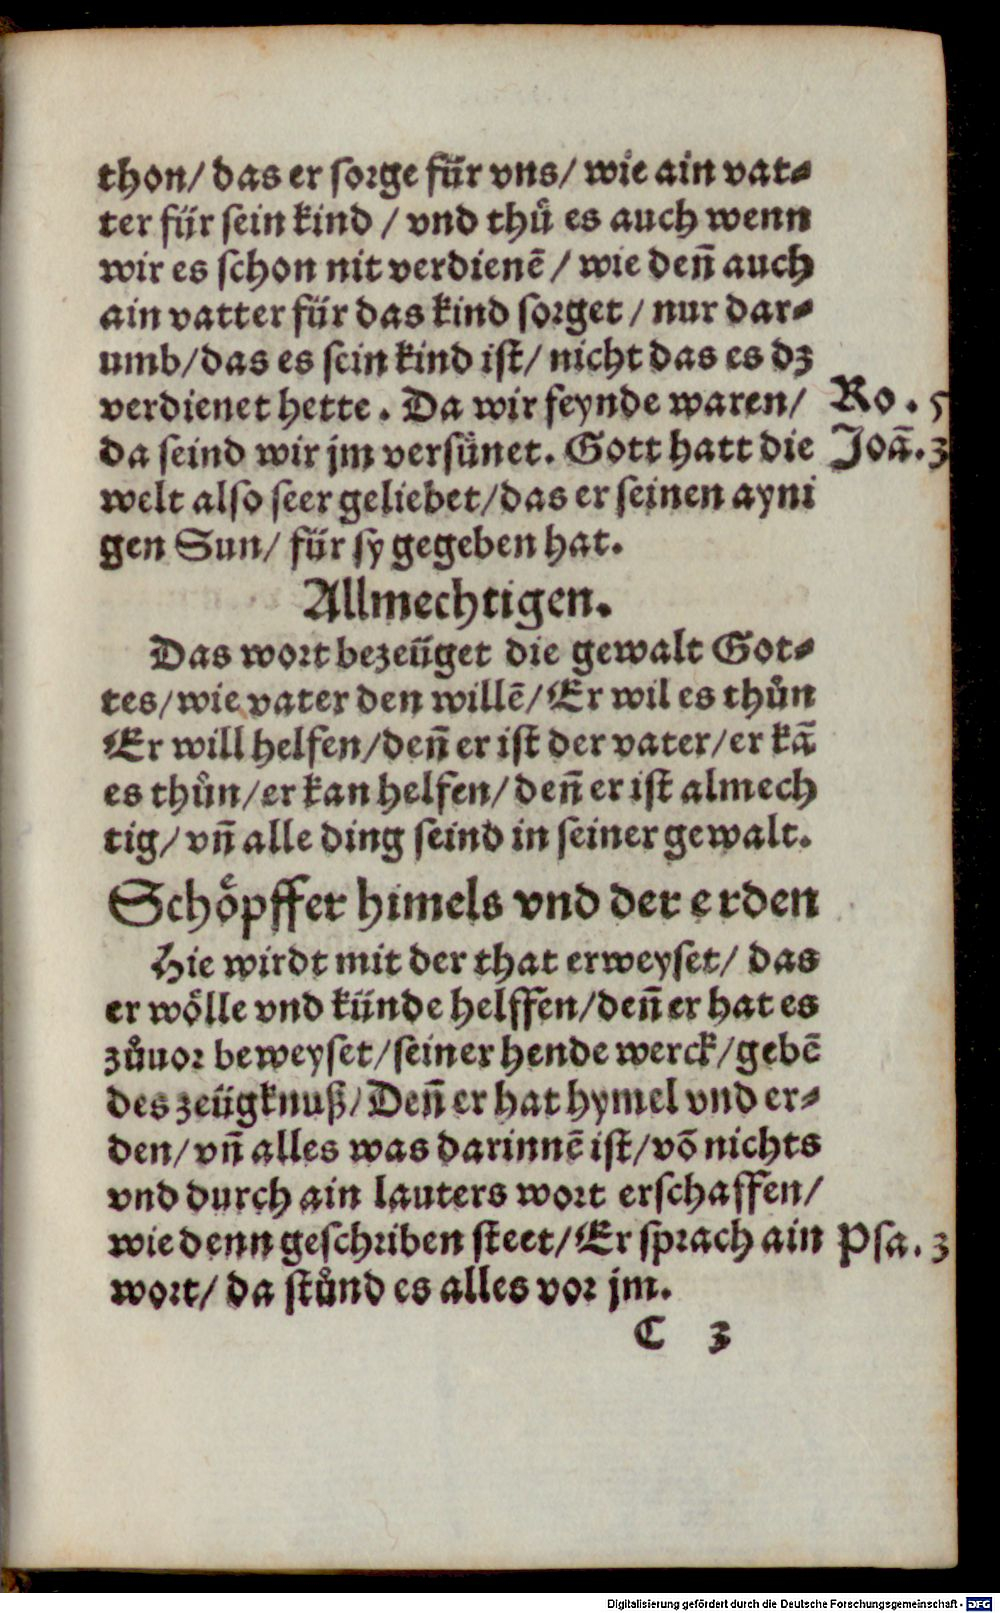 thon/ das er sorge für vns/ wie ain vat⸗
ter für sein kind / vnd thuͤ es auch wenn
wir es schon nit verdienē / wie deñ auch
ain vatter für das kind sorget / nur dar⸗
umb/das es sein kind ist/ nicht das es dz
verdienet hette . Da wir feynde waren/ Ro . 5
da seind wir jm versünet. Gott hatt die Joã. 3
welt also seer geliebet/das er seinen ayni
gen Sun/ für sy gegeben hat.
Allmechtigen.
Das wort bezeüget die gewalt Got⸗
tes/wie vater den willē/Er wil es thůn
Er will helfen/deñ er ist der vater/er kã
es thůn/er kan helfen/deñ er ist almech
tig/ vñ alle ding seind in seiner gewalt.
Schoͤpffer himels vnd der erden
Hie wirdt mit der that erweyset/ das
er woͤlle vnd künde helffen/deñ er hat es
zůuor beweyset/seiner hende werck/gebē
des zeügknuß/Deñ er hat hymel vnd er⸗
den/ vñ alles was darinnē ist/võ nichts
vnd durch ain lauters wort erschaffen/
wie denn geschriben steet/Er sprach ain Psa. 3
wort/ da stůnd es alles vor jm.
C 3
Digitalisierung gefördert durch die Deutsche Forschungsgemeinschaft - DFG